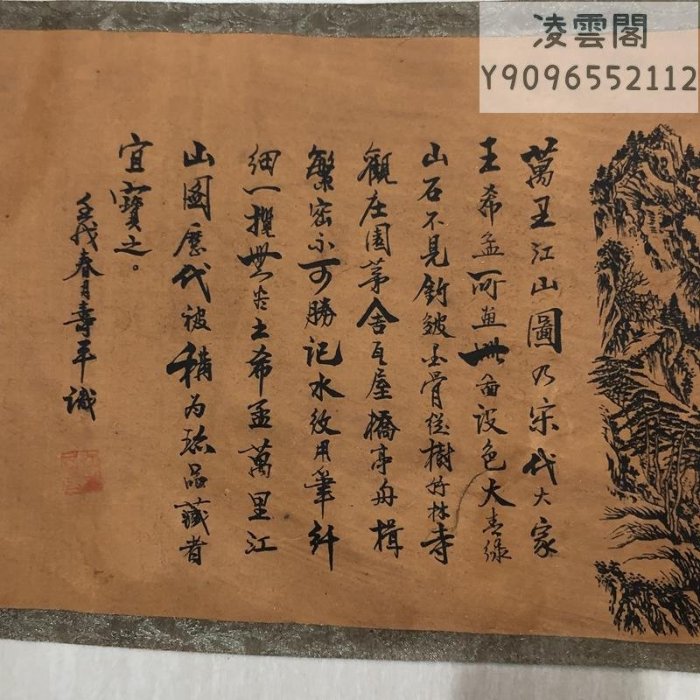 凌雲閣
Y9096552112
萬里江山圖乃宋代大家
王希孟所畫此畵設色大青綠
山石不見釣皴골骨從樹竹林寺
觀庄園茅舍瓦屋橋亭舟楫
繁密不可勝記水紋用筆纤
细一攬無
王希孟萬里江
山图歷代被稱为珎品藏者
宜寶之。
壬戌春月壽平識